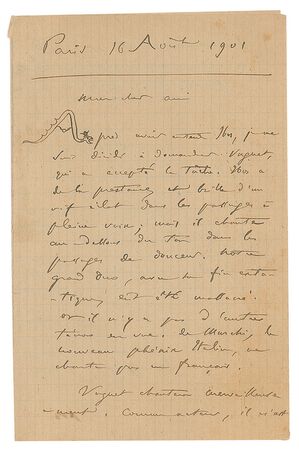 Paris 16 Août 1901
mon cher ami
Après avoir entendu Ibos, je me
suis décidé à demander Vaguet,
qui a accepté la tâche. Ibos a
de la prestance et brille d'un
vif éclat dans les passages à
pleine voix; mais il chante
au dessous du ton dans les
passages de douceur. Notre
grand duo, avec sa fin enton
-tique, eût été massacré.
Or il n'y a pas d'autre
ténors en vue. de Marchi, le
nouveau phénix Italien, ne
chante pas en français.
Vaguet chantera merveilleuse
-ment. Comme acteur, il n'est